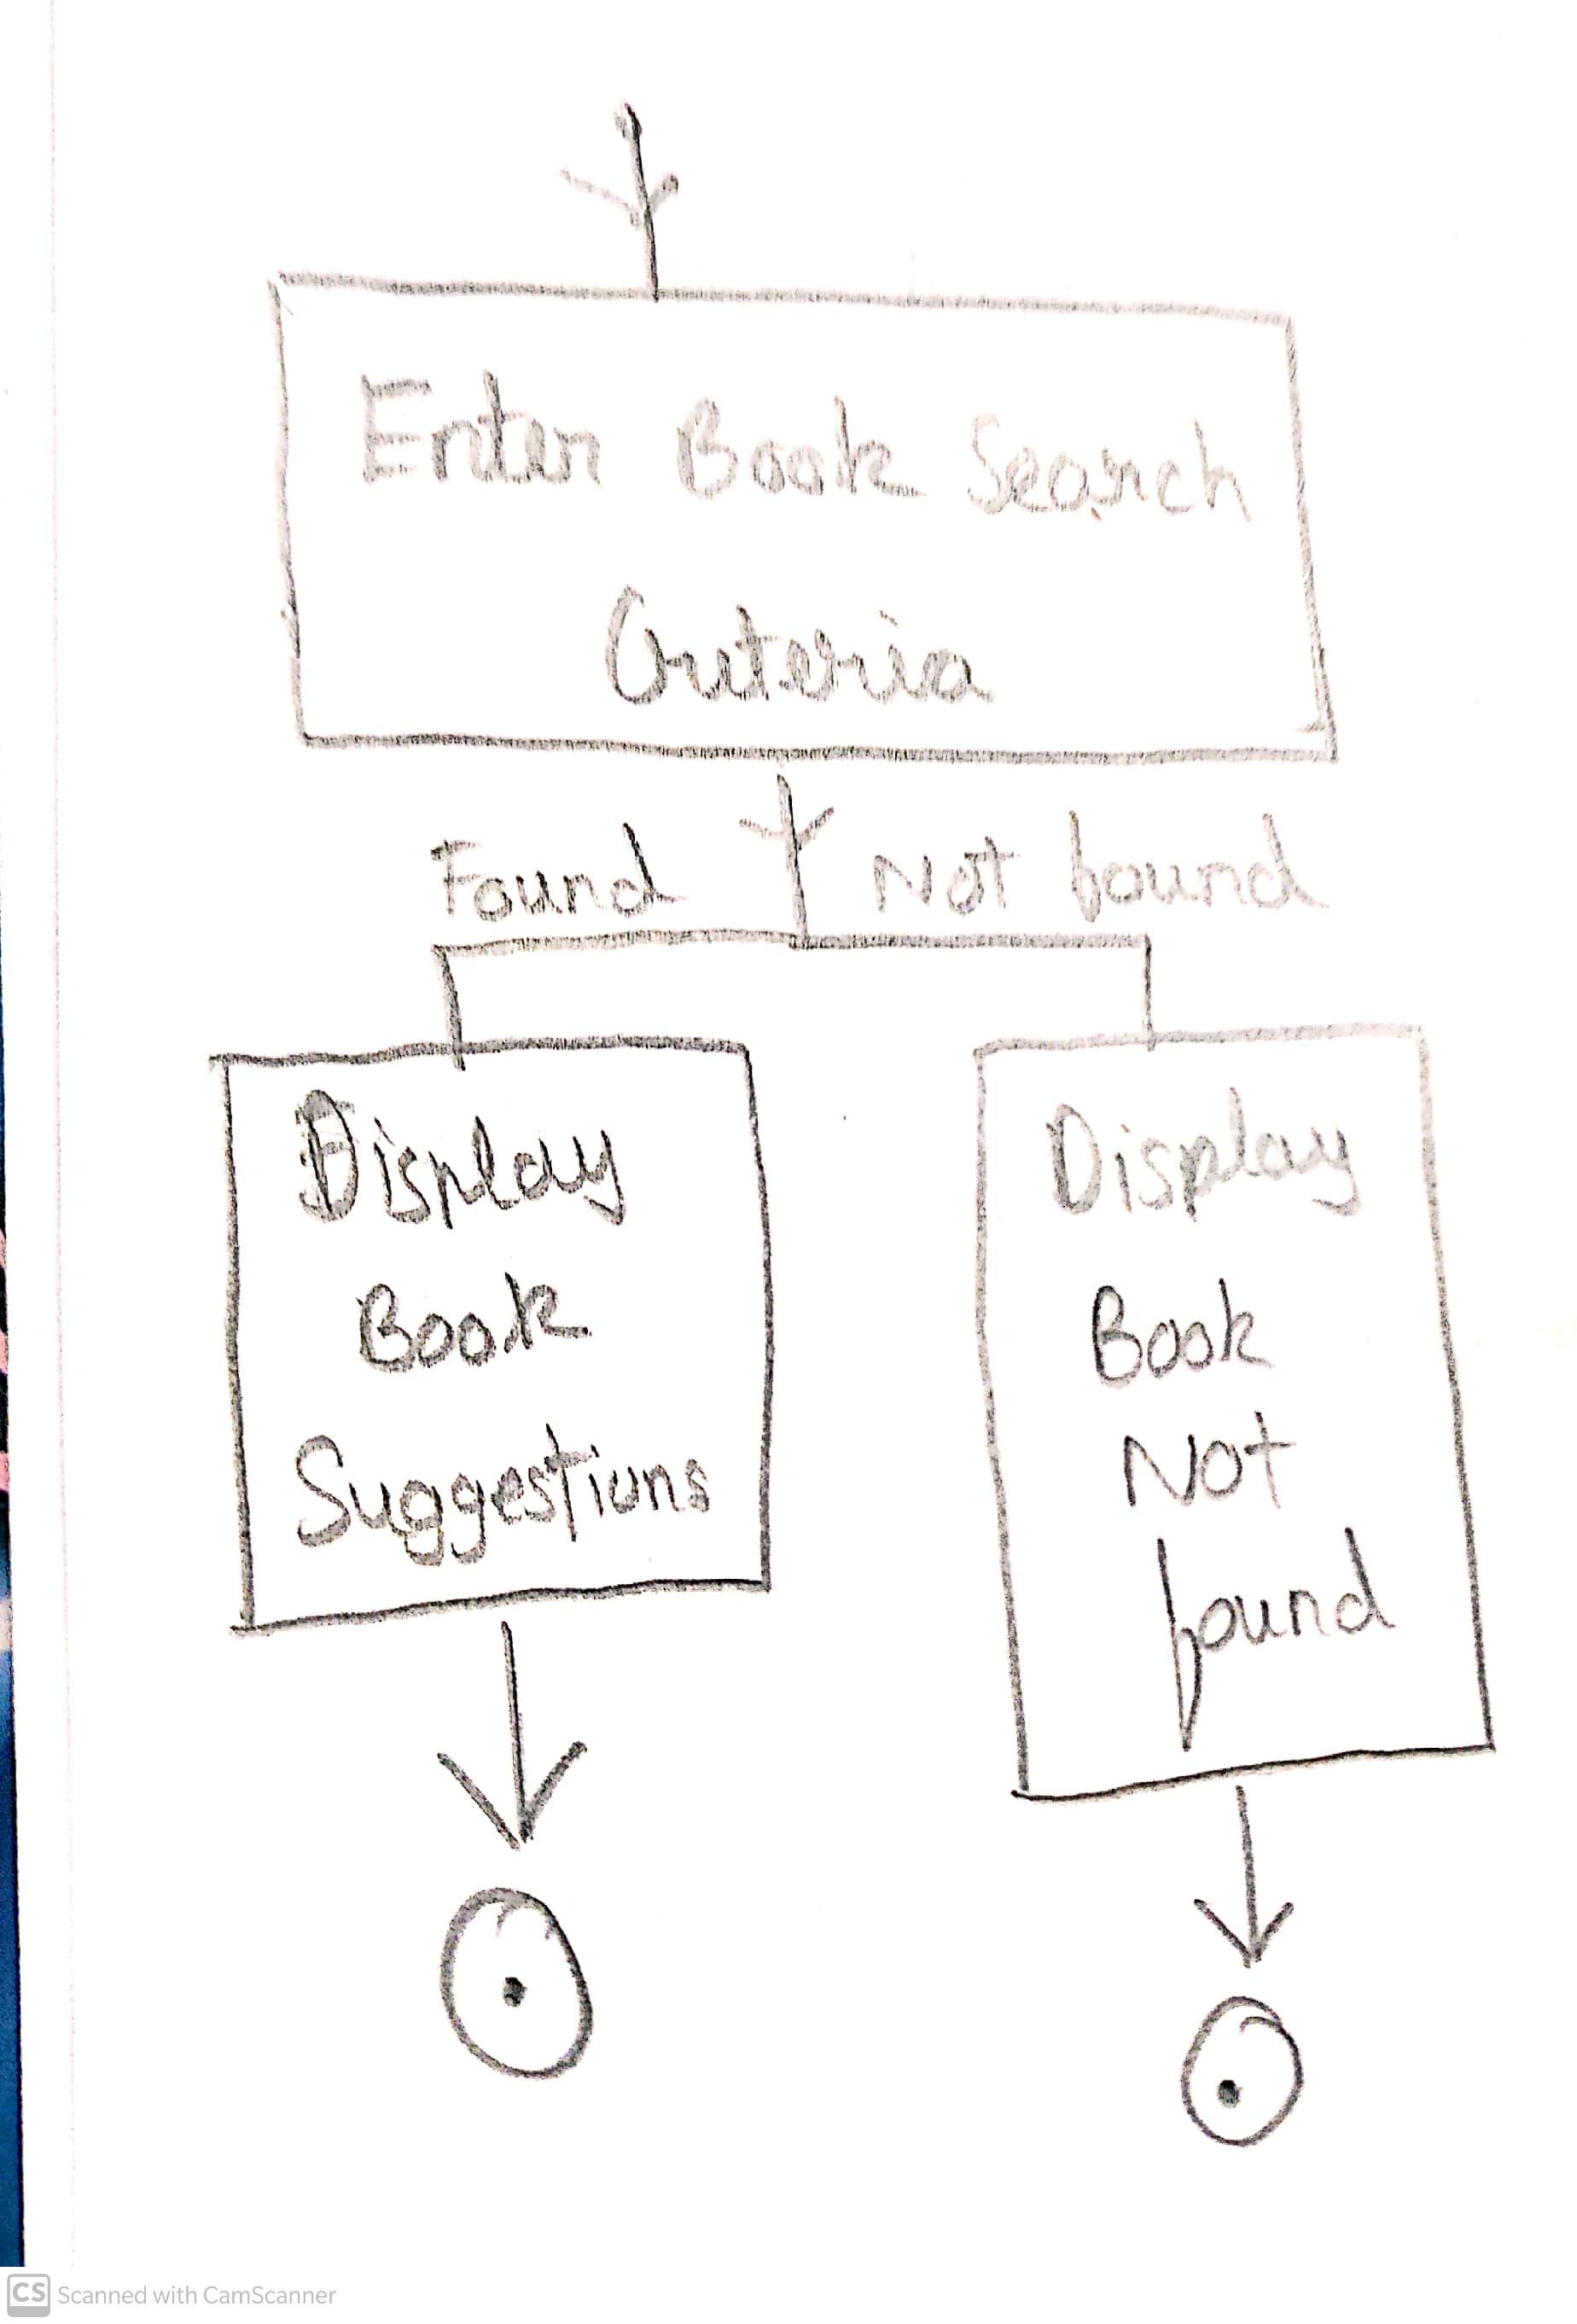 Enter Book Search
Criteria
Found
Not found
Display
Book
Suggestions
Display
Book
Not
found
CS Scanned with CamScanner